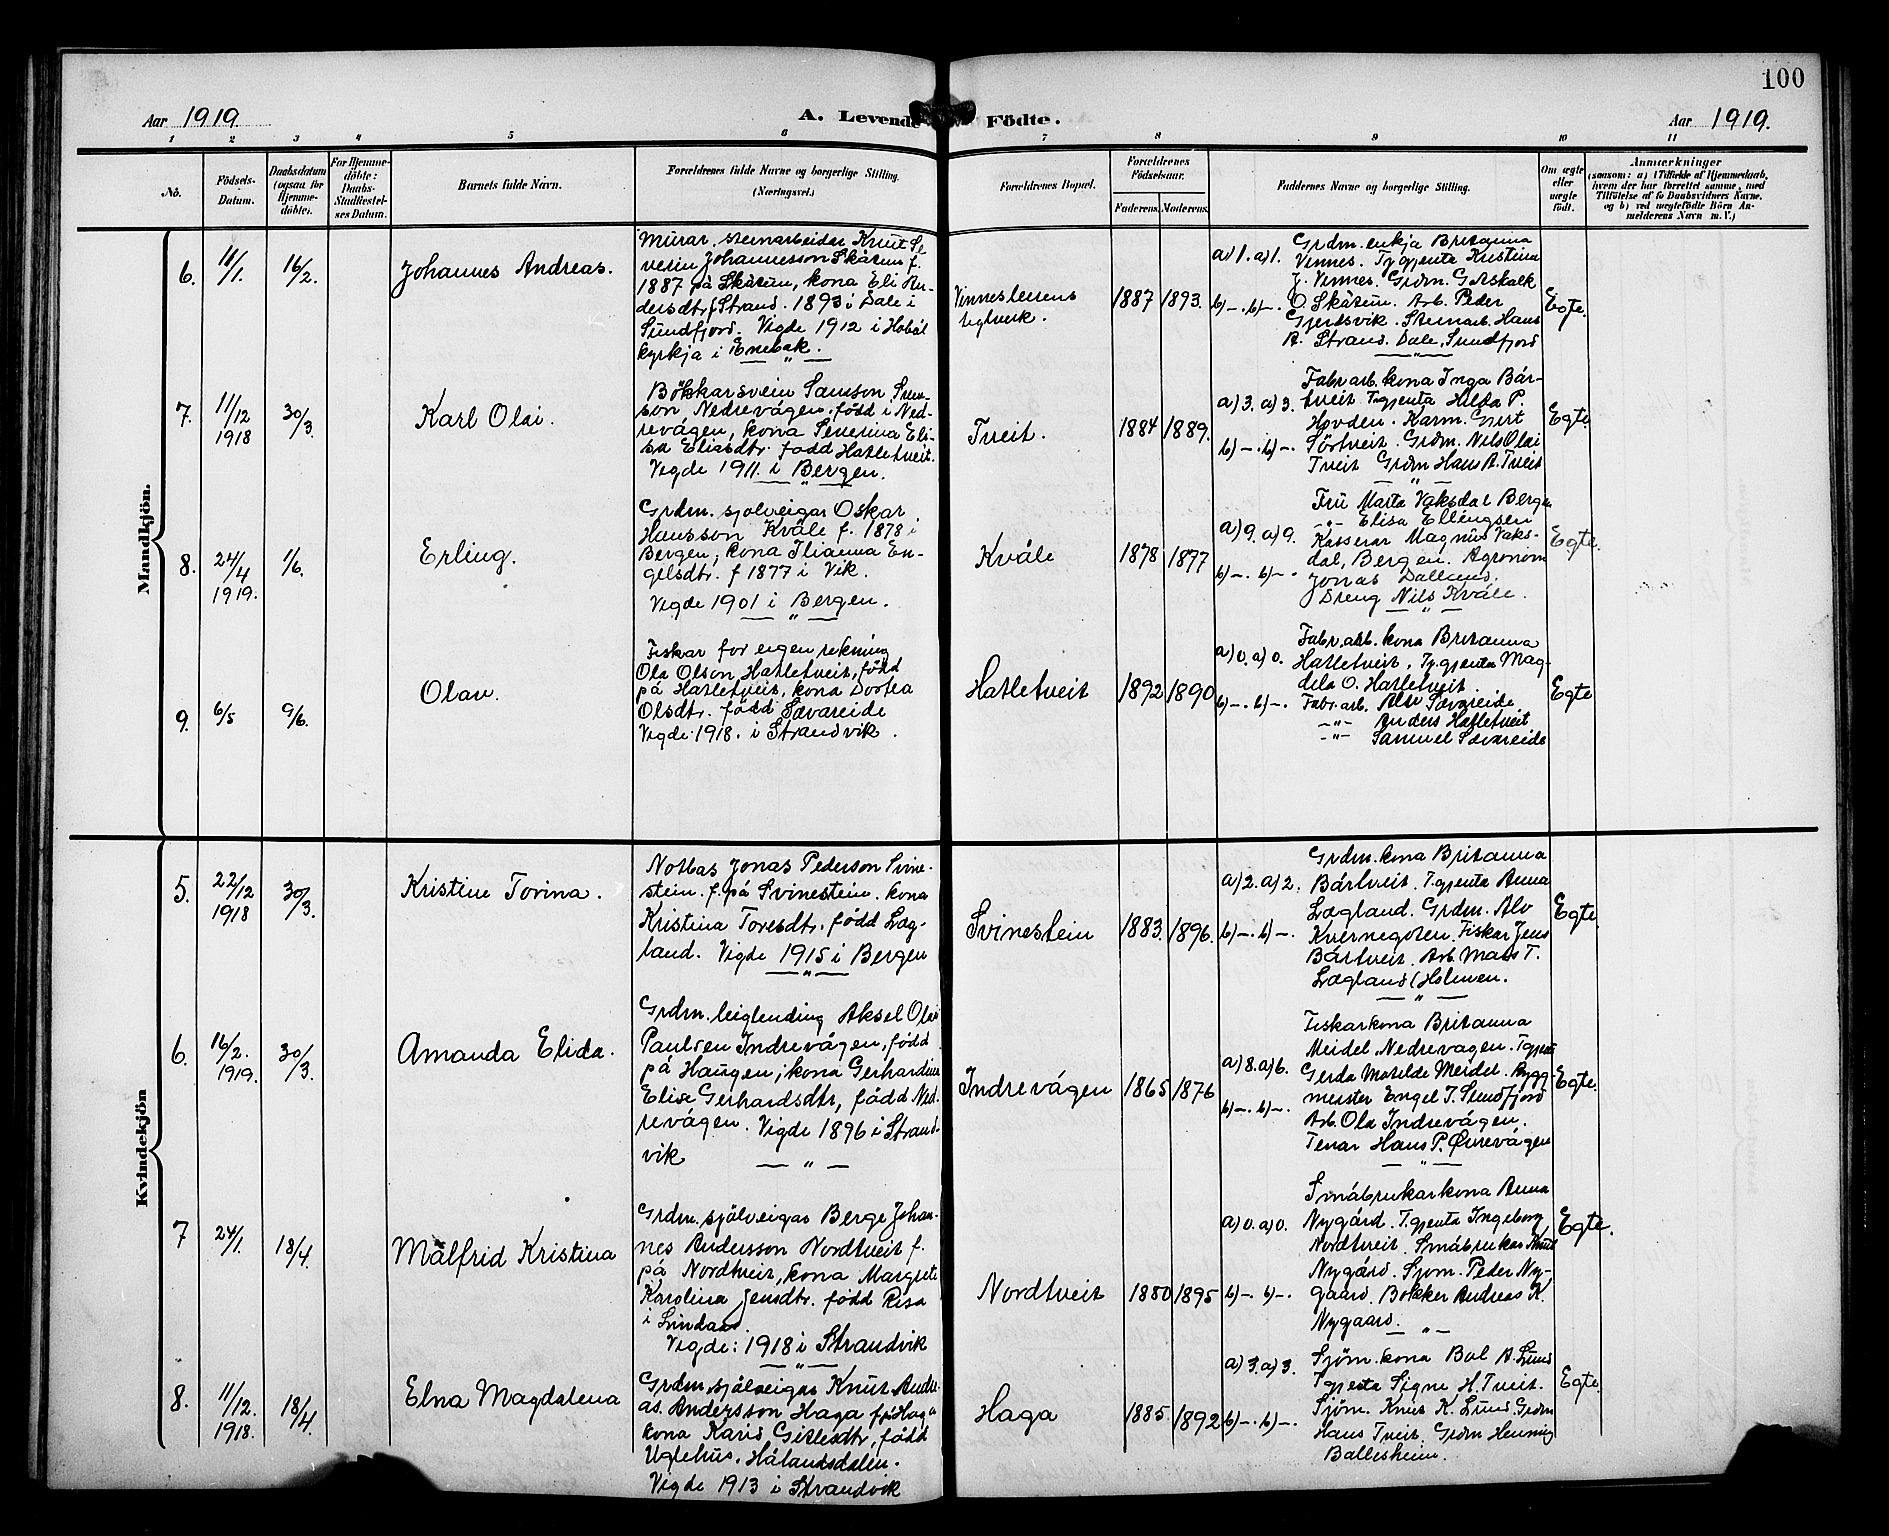 100
Aar 1919
A. Levende Födte.
Aar 1919.
1 2 3 4 5 6 7 8 9 10 11
No.
Födsels-
Datum.
Daabsdatum
(ogsaa for
Hjemme-
döbte).
For Hjemme-
döbte:
Daabs-
Stadfæstel-
ses Datum.
Barnets fulde Navn.
Forældrenes fulde Navne og borgerlige Stilling.
(Næringsvei.)
Forældrenes Bopæl.
Forældrenes
Födselsaar.
Faderens. Moderens.
Faddernes Navne og borgerlige Stilling.
Om ægte
eller
uægte
födt.
Anmærkninger
(saasom: a) i Tilfælde af Hjemmedaab,
hvem der har forrettet samme, med
Tilföielse af to Daabsvidners Navne,
og b) ved uægtefödte Börn An-
melderens Navn m. V.)
Mandkjön.
6. 11/1. 16/2. Johannes Andreas.
Murar, steinarbeidar Knut Se-
verin Johannesson Skåtun f.
1887 på Skåtun, kona Eli An-
dersdtr f Strand. 1893 i Dale i
Sundfjord. Vigde 1912 i Hobøl
kyrkja i Enebak.
Vinnesleirens
teglverk.
1887 1893.
a) 1. a) 1.
b) -. b) -.
Grdm. enkja Britanna
Vinnes. Tg. gjenta Kristina
J. Vinnes. Grdm. Gotskalk
O. Skåtun. Arb. Peder
Gjertsvik. Steinarb. Hans
A. Strand. Dale, Sundfjord
Egte.
7. 11/12 1918 30/3. Karl Olai.
Bökkarsvein Samson Sven-
son, Nedrevågen, född i Ned-
revågen, kona Severina Eli-
sa Eliasdtr. född Hatletveit.
Vigde 1911. i Bergen.
Tveit.
1884 1889.
a) 3. a) 3.
b) -. b) -.
Fabr. arb. kona Inga Bår-
tveit Tg. gjenta Hilda P.
Hovden. Karm. Gjert
Sörtveit. Grdm. Nils Olai
Tveit Grdm Hans A. Tveit
Egte.
8. 24/4 1919. 1/6. Erling.
Grdm. sjolveigar Oskar
Hansson Kvåle f. 1878 i
Bergen, kona Ilianna En-
gelsdtr. f 1877 i Vik.
Vigde 1901 i Bergen.
Kvåle
1878 1877
a) 9. a) 9.
b) -. b) -.
Fru Marta Vaksdal Bergen
-"- Elisa Ellingsen
Kasserar Magnus Vaks-
dal, Bergen. Agronom
Jonas Dalland.
Dreng Nils Kvåle.
Egte.
9. 6/5 9/6. Olav.
Fiskar for eigen rekning
Ola Olson Hatletveit, född
på Hatletveit, kona Dortea
Olsdtr. född Sævareide
Vigde 1918. i Strandvik.
Hatletveit
1892 1890
a) 0. a) 0.
b) -. b) -.
Fabr. arb. kona Britanna
Hatletveit, Tg. gjenta Mag-
dela O. Hatletveit.
Fabr. arb. Peder Sævareide
-"- Anders Hatletveit
-"- Samuel Sævareide
Egte
Kvindekjön
5. 22/12 1918 30/3. Kristine Torina.
Notbas Jonas Pederson Svine-
stein. f. på Svinestein. kona
Kristina Toresdtr. född Læg-
land. Vigde 1915 i Bergen
Svinestein
1883. 1896.
a) 2. a) 2.
b) -. b) -.
Grdm. kona Britanna
Bårtveit. Tg. gjenta Anna
Lægland. Grdm. Alv
Kvernegoten. Fiskar Jens
Bårtveit. Arb Mass T.
Lægland (Holmen.
Egte.
6. 16/2. 1919. 30/3. Amanda Elida.
Grdm. leiglending Aksel Olai
Paulsen Indrevågen, född
på Haugen; kona Gerhardine
Elise Gerhardsdtr, född Ned-
revågen. Vigde 1896 i Strand-
vik
Indrevågen
1865 1876
a) 8. a) 6.
b) -. b) -.
Fiskarkona Britanna
Meidel, Nedrevagen. Tgjente
Gerda Matilde Meidel. Bygg
meister Engel T. Sundfjord
Arb. Ola Indrevågen.
Tenar Hans P. Övrevågen
Egte.
7 24/1. 18/4. Målfrid Kristina
Grdm. själveigar Berge Johan-
nes Andersson Nordtveit f.
på Nordtveit, kona Margrete
Karolina Jensdtr. född Risa
i Lindaas.
Vigde: 1918 i Strandvik
Nordtveit
1880 1895
a) 0. a) 0.
b) -. b) -.
Småbrukarkona Anna
Nygård. Tgjenta Ingeborg
Nordtveit. Småbrukar Knut
Nygård. Sjom. Peder Ny-
gaard. Bökker Andreas K.
Nygaard.
Egte.
8. 11/12. 1918. 18/4. Elna Magdalena
Grdm. själveigar Knut Andre-
as. Andersson Haga f. på Haga
kona Kari Gitlesdtr, född
Uglehus, Hålandsdalen.
Vigde 1913 i Strandvik
Haga
1885 1892
a) 3. a) 3.
b) -. b) -.
Sjöm. kona Bol A. Lund
Tgjenta Signe H. Tveit.
Sjöm. Knut K. Lund. Grdm
Hans Tveit. Grdm Henning
Ballesheim.
Egte.